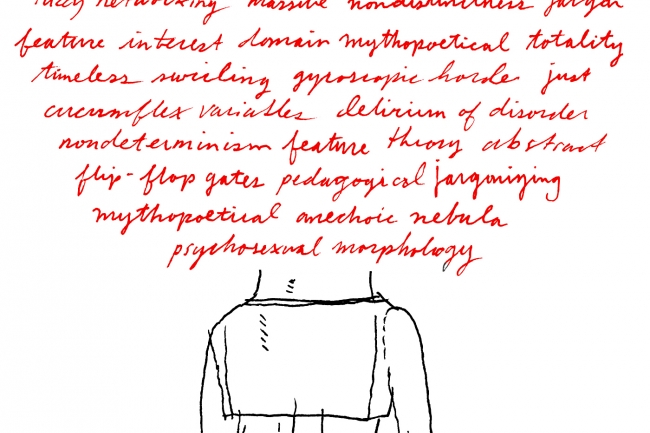 fuzzy networking massive nondistinctness jargon
feature interest domain mythopoetical totality
timeless swirling gyroscopic horde just
circumflex variables delirium of disorder
nondeterminism feature theory abstract
flip-flop gates pedagogical jargonizing
mythopoetical anechoic nebula
psychosexual morphology